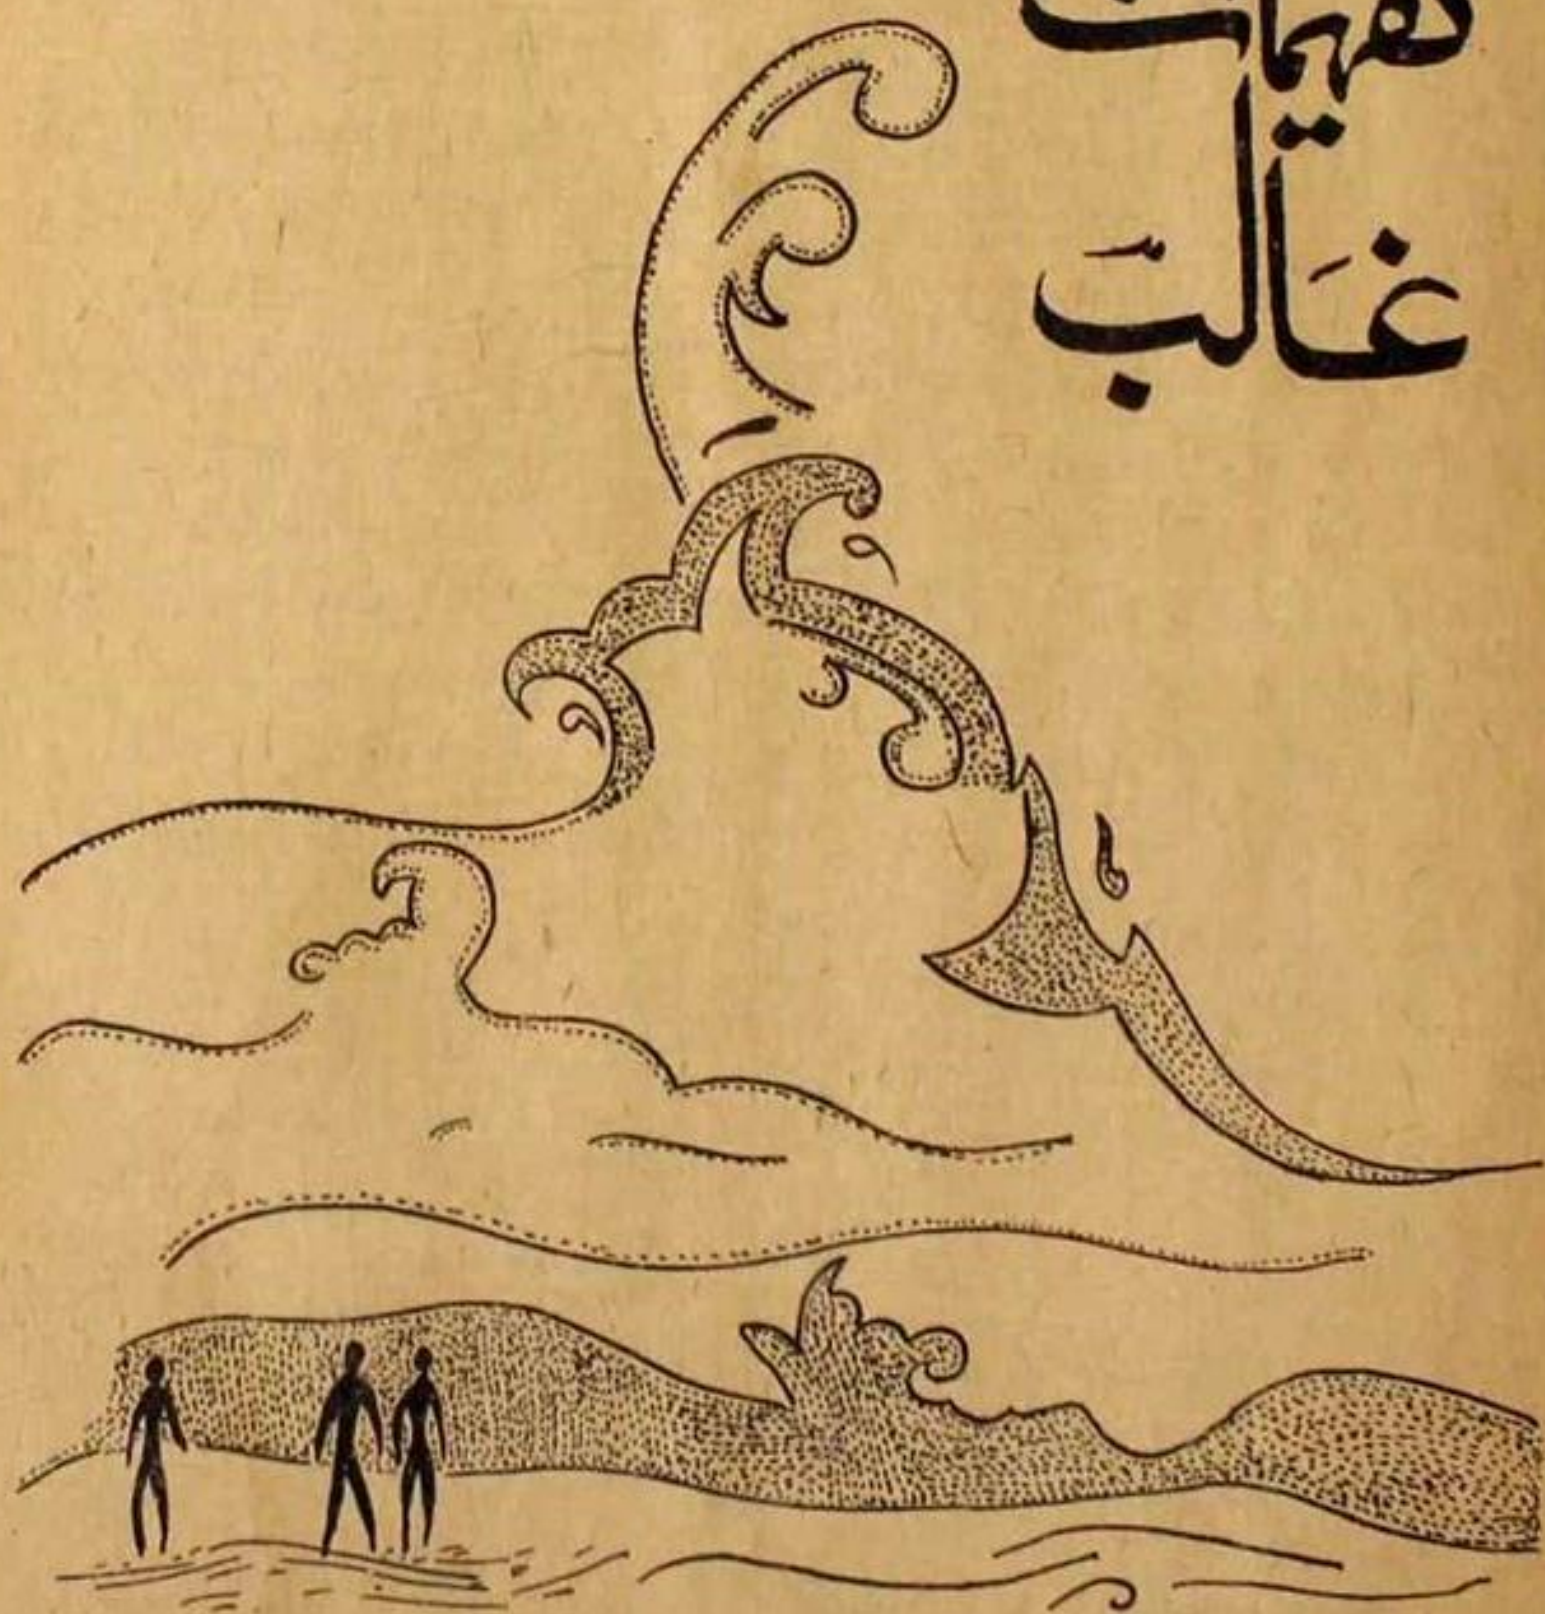 تفہیمات
غَالبؔ